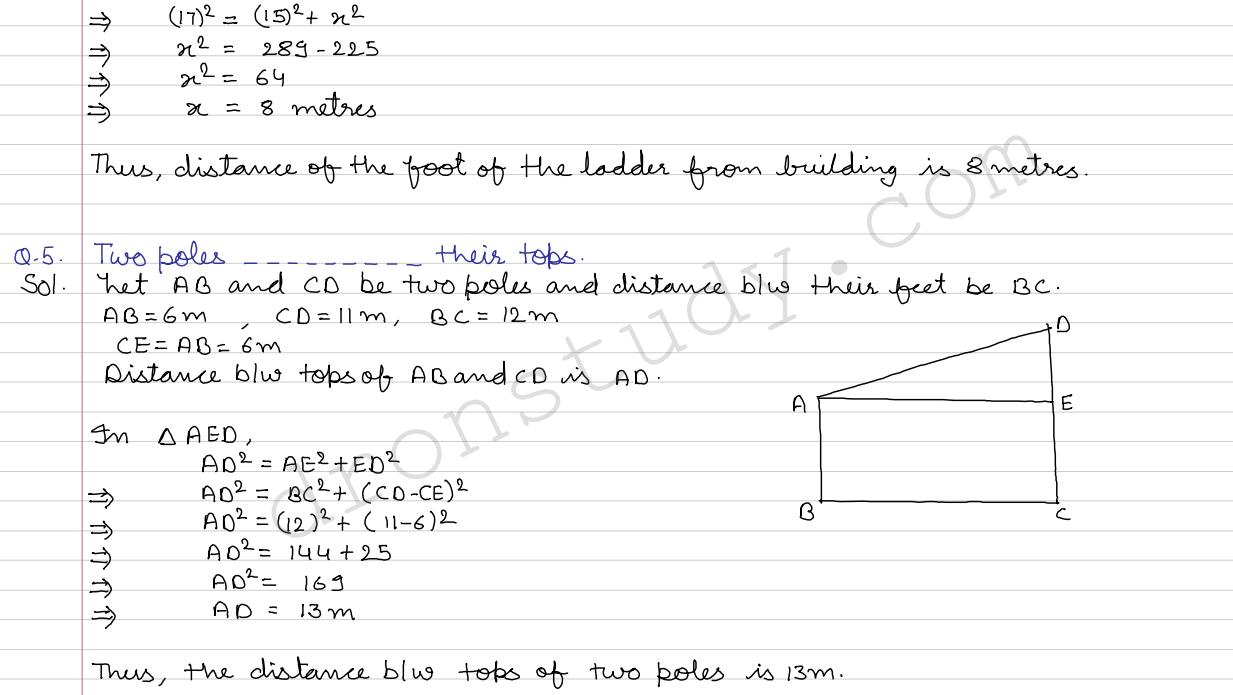 ⇒ (17)² = (15)² + x²
⇒ x² = 289 - 225
⇒ x² = 64
⇒ x = 8 metres
Thus, distance of the foot of the ladder from building is 8 metres.
Q.5. Two poles _ _ _ _ _ _ _ _ _ their tops.
Sol. Let AB and CD be two poles and distance b/w their feet be BC.
AB = 6m , CD = 11m, BC = 12m
CE = AB = 6m
Distance b/w tops of AB and CD is AD.
In △ AED,
AD² = AE² + ED²
⇒ AD² = BC² + (CD-CE)²
⇒ AD² = (12)² + (11-6)²
⇒ AD² = 144 + 25
⇒ AD² = 169
⇒ AD = 13m
Thus, the distance b/w tops of two poles is 13m.
D
A E
B C
dronstudy.com